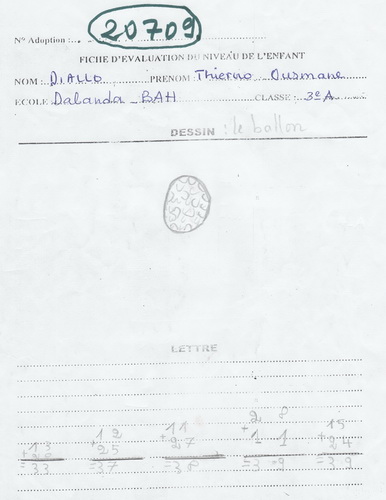 N° Adoption :.. 20709
FICHE D'EVALUATION DU NIVEAU DE L'ENFANT
NOM : DiALLO PRENOM : Thierno Ousmane
ECOLE Dalanda - BAH CLASSE : 3e A
DESSIN : le ballon
LETTRE
12 11 2 8 15
+13 +25 +27 +1 1 +24
=33 =37 =38 =3 9 =39